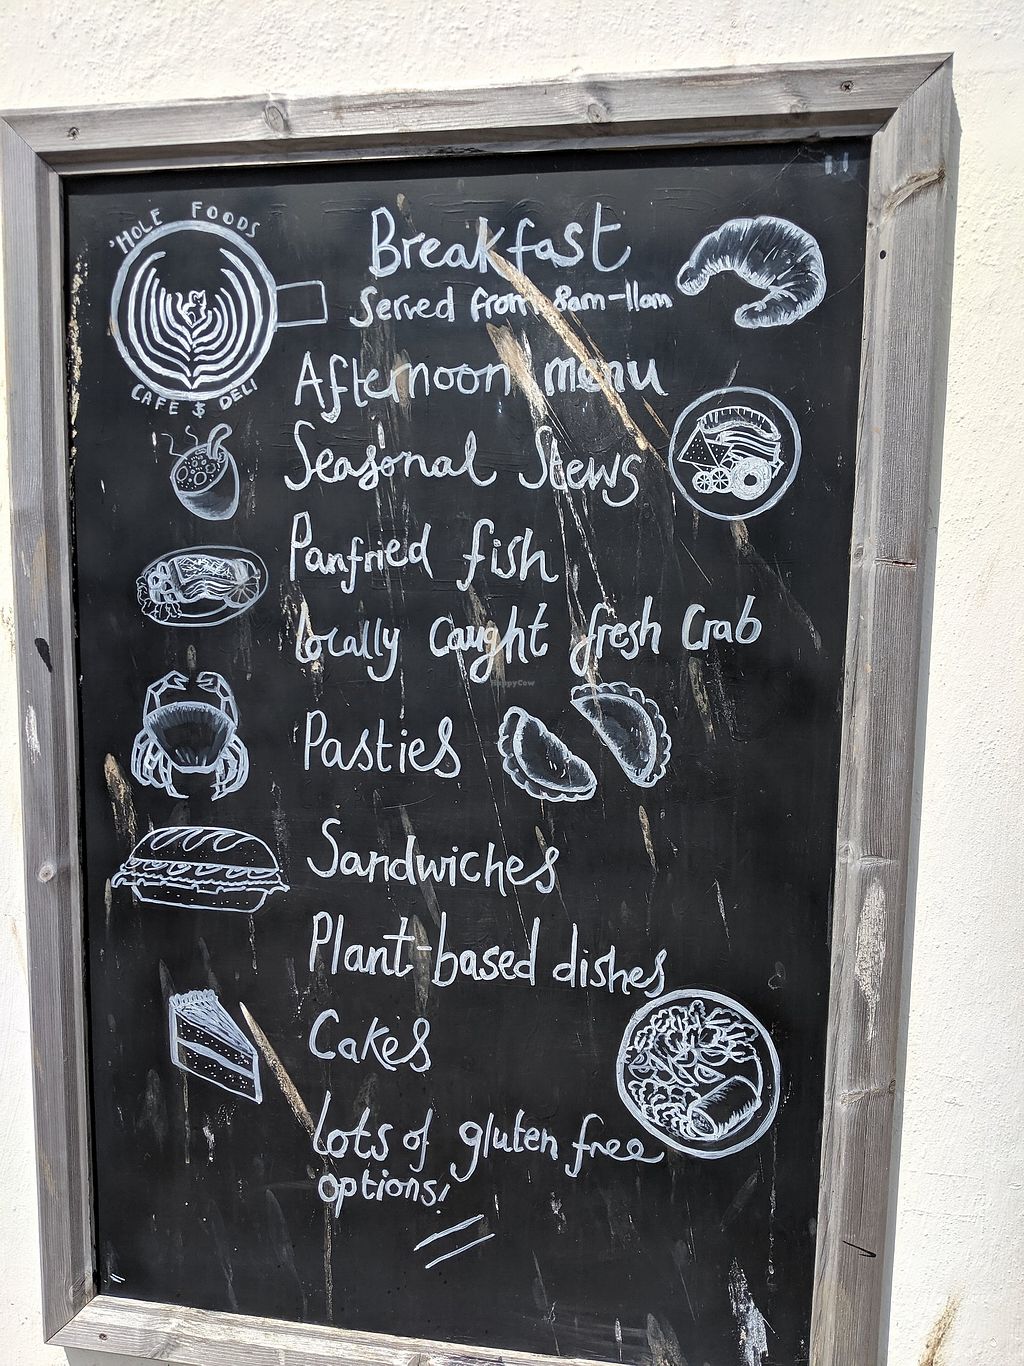 'HOLE FOODS
CAFE $ DELI
Breakfast
Served from 8am-11am
Afternoon menu
Seasonal Stews
Panfried fish
locally caught fresh Crab
HappyCow
Pasties
Sandwiches
Plant-based dishes
Cakes
lots of gluten free
options!